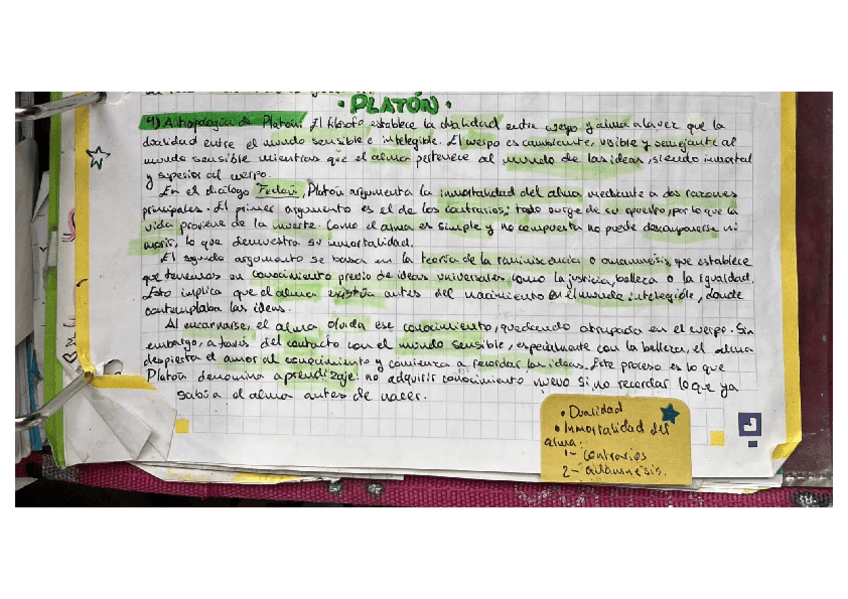 • PLATÓN •
4) Antropología de Platón: El filósofo establece la dualidad entre cuerpo y alma a la vez que la
dualidad entre el mundo sensible e intelegible. El cuerpo es cambiante, visible y semejante al
mundo sensible mientras que el alma pertenece al mundo de las ideas, siendo inmortal
y superior al cuerpo.
En el diálogo Fedón, Platón argumenta la inmortalidad del alma mediante a dos razones
principales. El primer argumento es el de los contrarios; todo surge de su opuesto, por lo que la
vida proviene de la muerte. Como el alma es simple y no compuesta no puede descomponerse ni
morir, lo que demuestra su inmortalidad.
El segundo argumento se basa en la teoría de la reminiscencia o anamnesis, que establece
que tenemos un conocimiento previo de ideas universales como la justicia, belleza o la igualdad.
Esto implica que el alma existía antes del nacimiento en el mundo intelegible, donde
contemplaba las ideas.
Al encarnarse, el alma olvida ese conocimiento, quedando atrapada en el cuerpo. Sin
embargo, a través del contacto con el mundo sensible, especialmente con la belleza, el alma
despierta el amor al conocimiento y comienza a recordar las ideas. Este proceso es lo que
Platón denomina aprendizaje: no adquirir conocimiento nuevo si no recordar lo que ya
sabía el alma antes de nacer.
• Dualidad
• Inmortalidad del
alma:
1- contrarios
2- anamnesis.